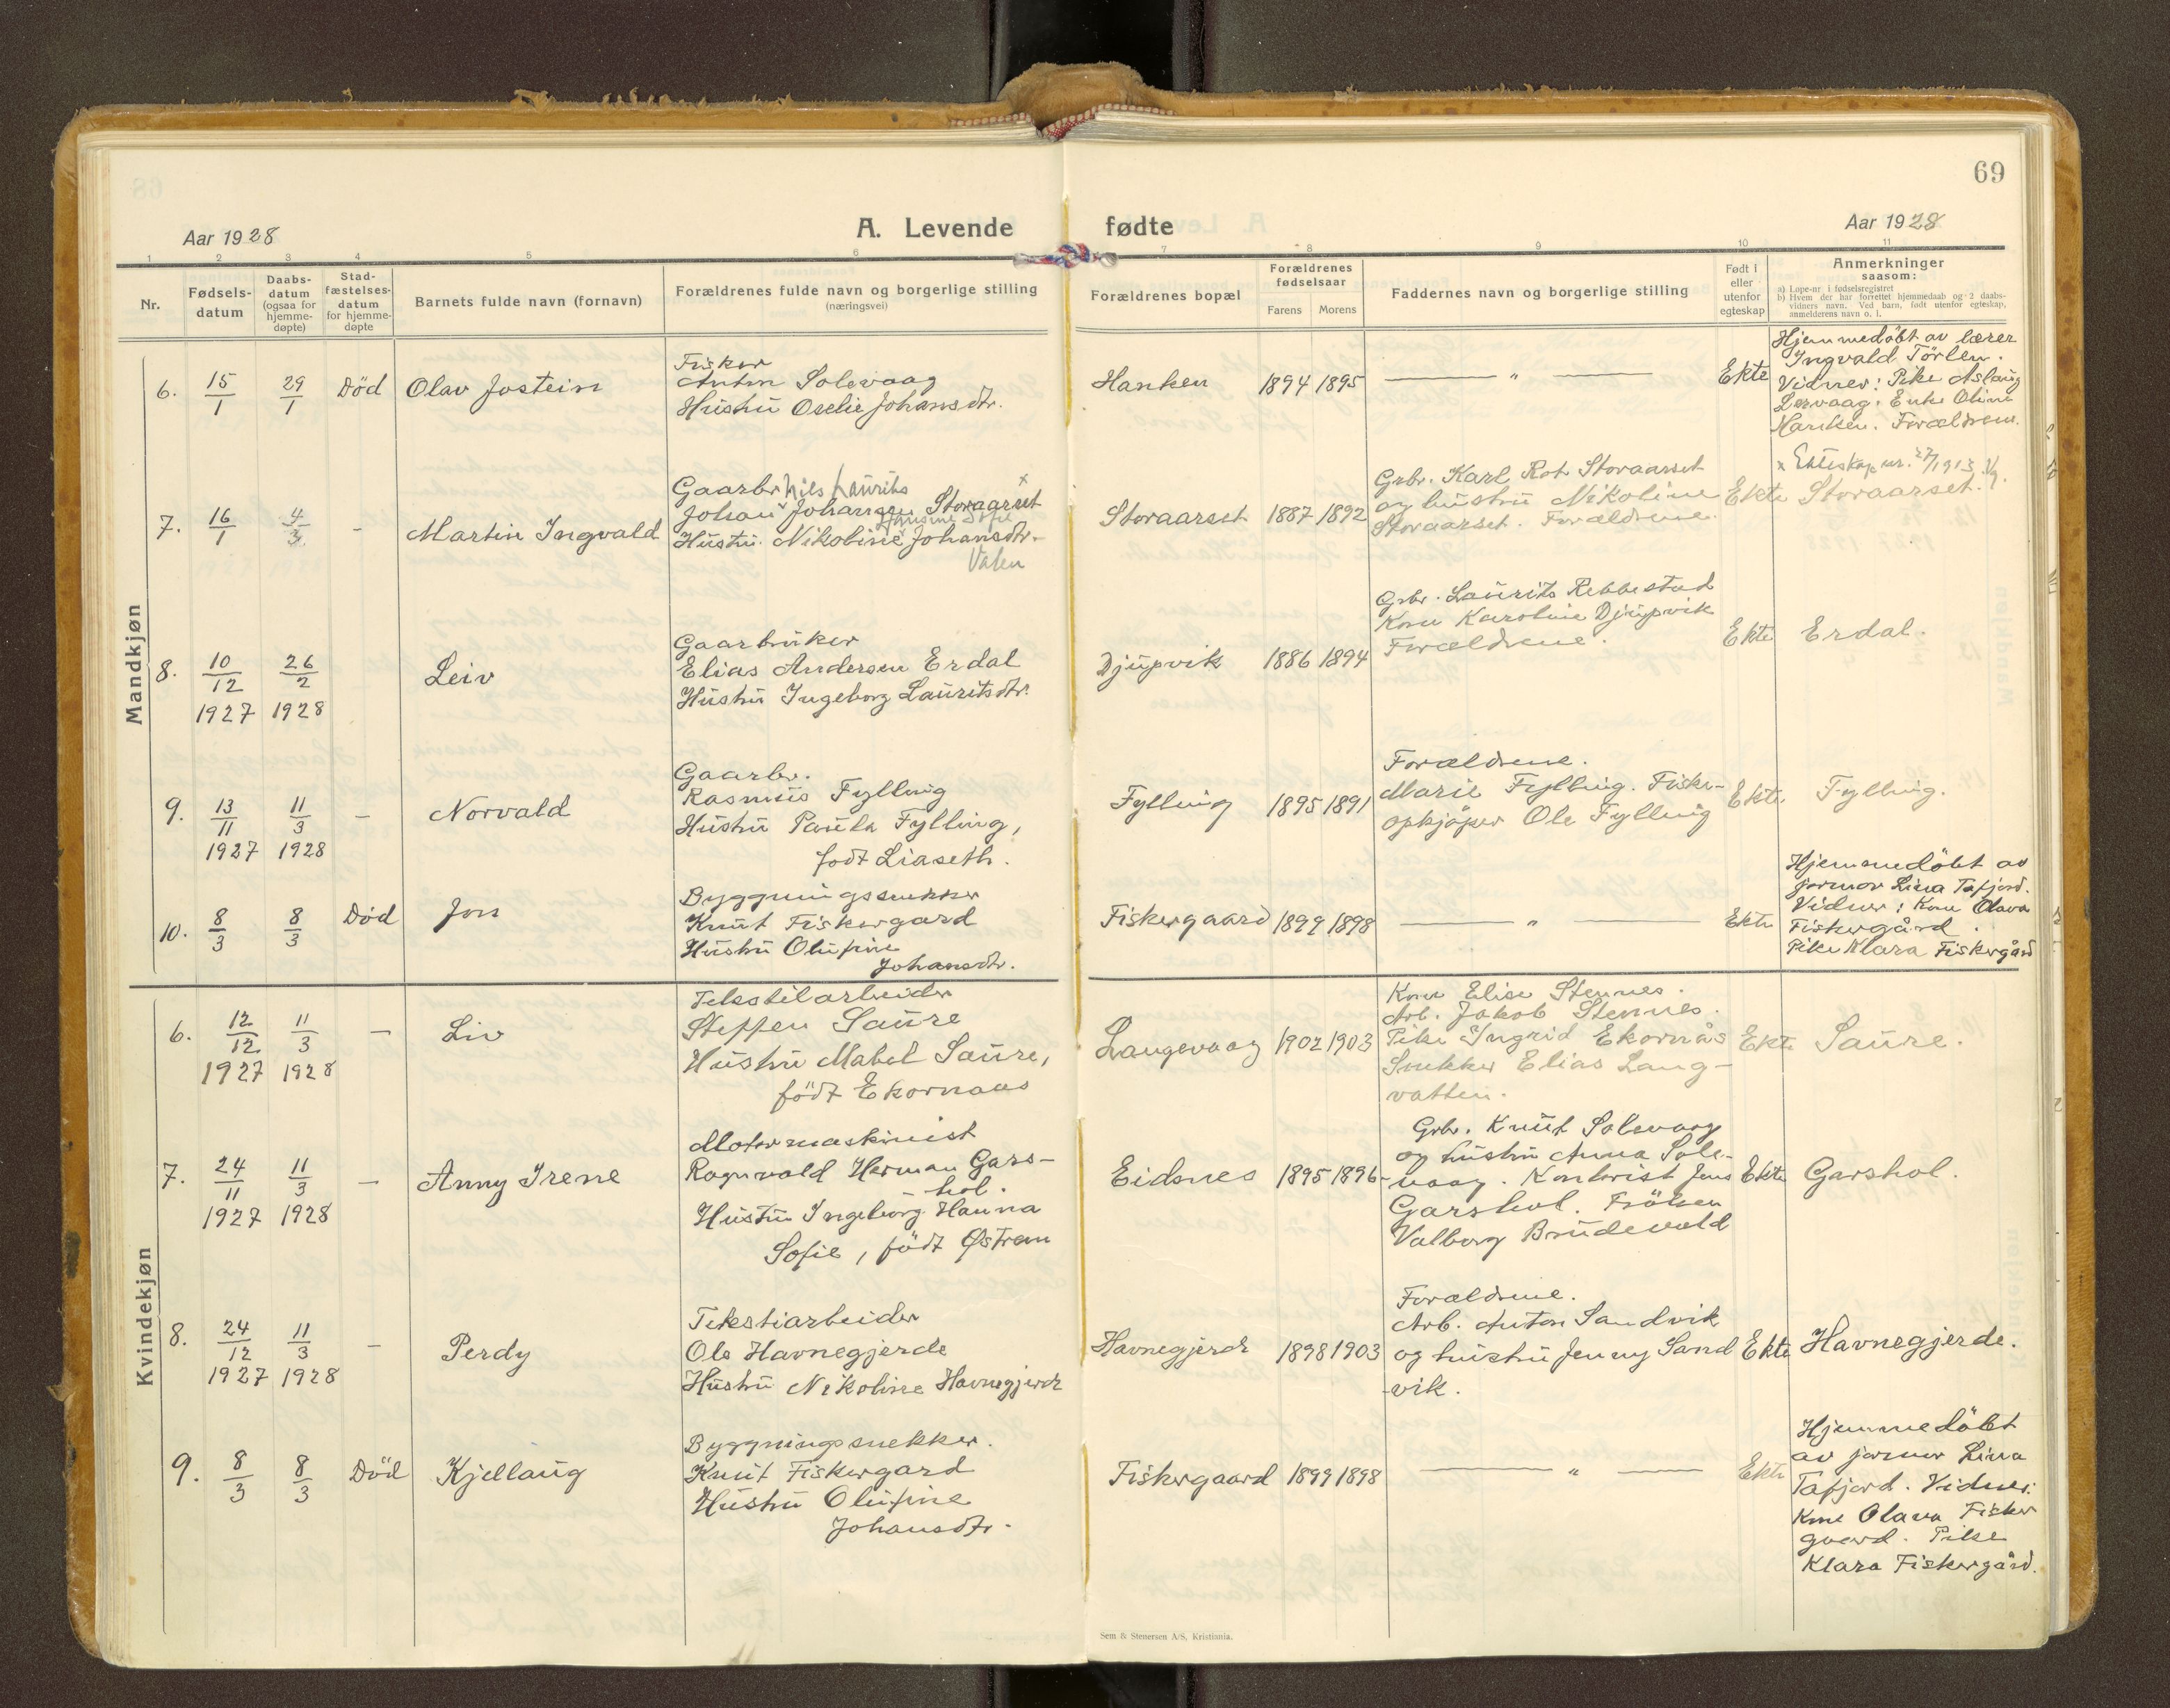 69
Aar 1928
A. Levende fødte
Aar 1928
1 2 3 4 5 6 7 8 9 10 11
Nr.
Fødsels-
datum
Daabs-
datum
(ogsaa for
hjemme-
døpte)
Stad-
fæstelses-
datum
for hjemme-
døpte
Barnets fulde navn (fornavn)
Forældrenes fulde navn og borgerlige stilling
(næringsvei)
Forældrenes bopæl
Forældrenes
fødselsaar
Farens Morens
Faddernes navn og borgerlige stilling
Født i
eller
utenfor
egteskap
Anmerkninger
saasom:
a) Lope-nr. i fødselsregistret
b) Hvem der har forrettet hjemmedaab og 2 daabs-
vidners navn. Ved barn, født utenfor egteskap,
anmelderens navn o. l.
Mandkjøn
6. 15/1 29/1 Død Olav Jostein
Fisker
Anton Solevaag
Hustru Oselie Johansdtr.
Hanken 1894 1895 — „ — Ekte
Hjemmedöbt av lærer
Ingvald Törlen.
Vidner: Pike Aslaug
Lervaag. Enke Olina
Hanken. Forældrene.
7. 16/1 4/3 - Martin Ingvald
Gaarbr Nils Laurits
Johan Johansen Storaarset x
Hansine Sofie
Hustru Nikoline Johansdtr.
Valen
Storaarset 1887 1892
Grbr. Karl Rot. Storaarset
og hustru Nikoline
Storaarset. Forældrene.
Ekte
x Ekteskap nr. 27/1913
Storaarset.
8. 10/12 26/2 Leiv
1927 1928
Gaarbruker
Elias Andersen Erdal
Hustru Ingeborg Lauritsdtr.
Djupvik 1886 1894
Grbr. Laurits Rebbestad
Kone Karoline Djupvik
Forældrene.
Ekte Erdal.
9. 13/11 11/3 - Norvald
1927 1928
Gaarbr.
Rasmus Fylling
Hustru Paula Fylling,
født Liaseth.
Fylling 1895 1891
Forældrene.
Marie Fylling. Fiske-
opkjöper Ole Fylling
Ekte. Fylling.
10. 8/3 8/3 Död Jon
Byggningssnekker
Knut Fiskergard
Hustru Olufine
Johansdtr.
Fiskergaard 1899 1898 — „ — Ekte
Hjemmedöbt av
jormor Lina Tafjord.
Vidner: Kone Olava
Fiskergård.
Pike Klara Fiskergård
Kvindekjøn
6. 12/12 11/3 - Liv
1927 1928
Tekstilarbeider
Steffen Saure
Hustru Mabel Saure,
födt Ekornaas
Langevaag 1902 1903
Kone Elise Stennes.
Arb. Jakob Stennes.
Pike Ingrid Ekornås
Snekker Elias Lang-
vatten.
Ekte Saure.
7. 24/11 11/3 - Anny Irene
1927 1928
Motormaskinist
Ragnvald Herman Gars-
hol.
Hustru Ingeborg Hanna
Sofie, födt Østrem
Eidsnes 1895 1896
Grbr. Knut Solevaag
og hustru Anna Sole-
vaag. Kontorist Jens
Garshol. Fröken
Valborg Brudevold
Ekte Garshol.
8. 24/12 11/3 - Perdy
1927 1928
Tekstiarbeider
Ole Havnegjerde
Hustru Nikoline Havnegjerde
Havnegjerde 1898 1903
Forældrene.
Arb. Anton Sandvik
og hustru Jenny Sand
-vik.
Ekte Havnegjerde.
9. 8/3 8/3 Död Kjellaug
Byggningssnekker.
Knut Fiskergard
Hustru Olufine
Johansdtr.
Fiskergaard 1899 1898 — „ — Ekte
Hjemmedöbt
av jormor Lina
Tafjord. Vidner:
Kone Olava Fisker
gaard. Pike
Klara Fiskergård.
Sem & Stenersen A/S, Kristiania.